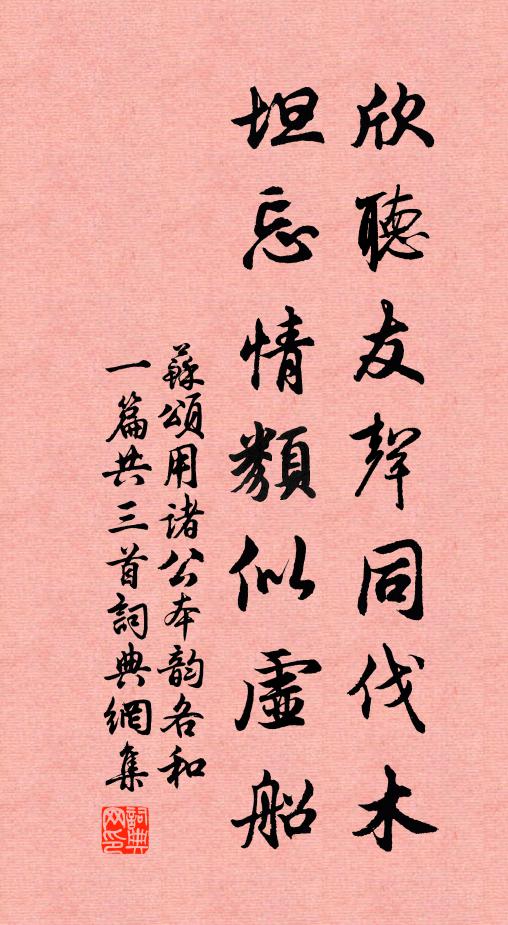 欣聽友聲同伐木
坦忘情類似虛船
蘇頌用诸公本韵各和
一篇共三首詞典網集
詞典网印